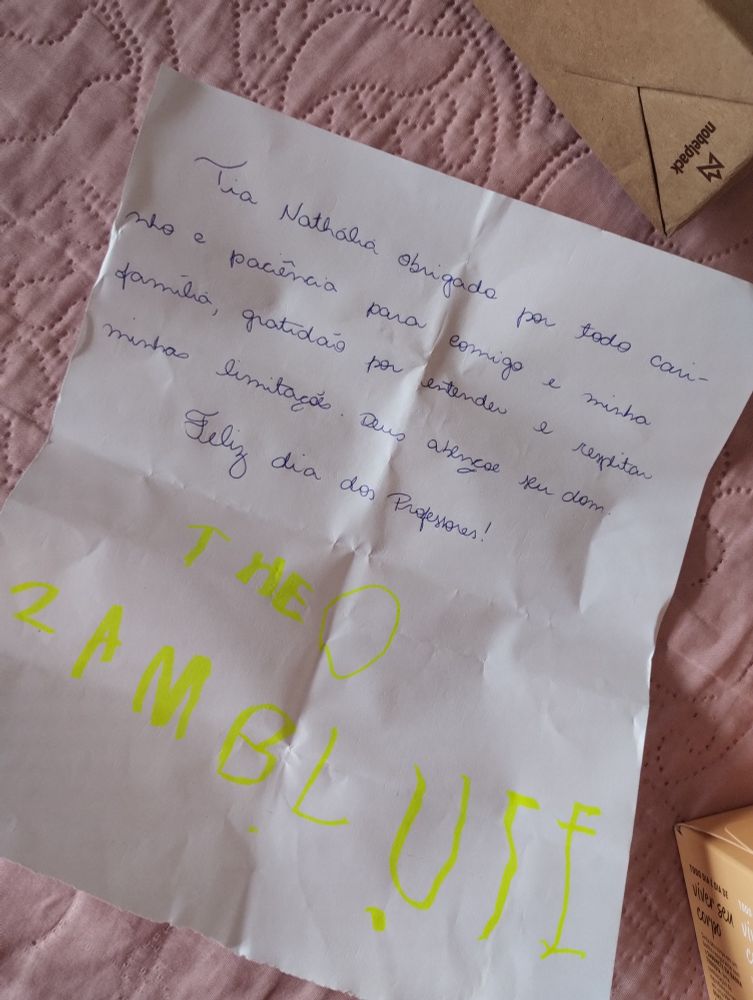 Tia Nathália obrigada por todo cari-
nho e paciência para comigo e minha
família, gratidão por entender e respeitar
minhas limitações. Deus abençoe seu dom.
Feliz dia dos Professores!
THEO
ZAMBLUTE
nobelpack
TODO DIA É DIA DE
viver seu
corpo